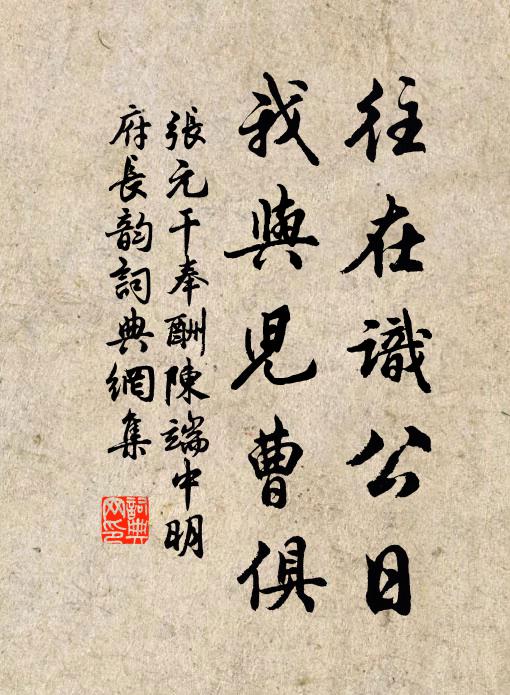 往在識公日
我與兒曹俱
張元干奉酬陳端中明
府長韵詞典網集
詞典
网印